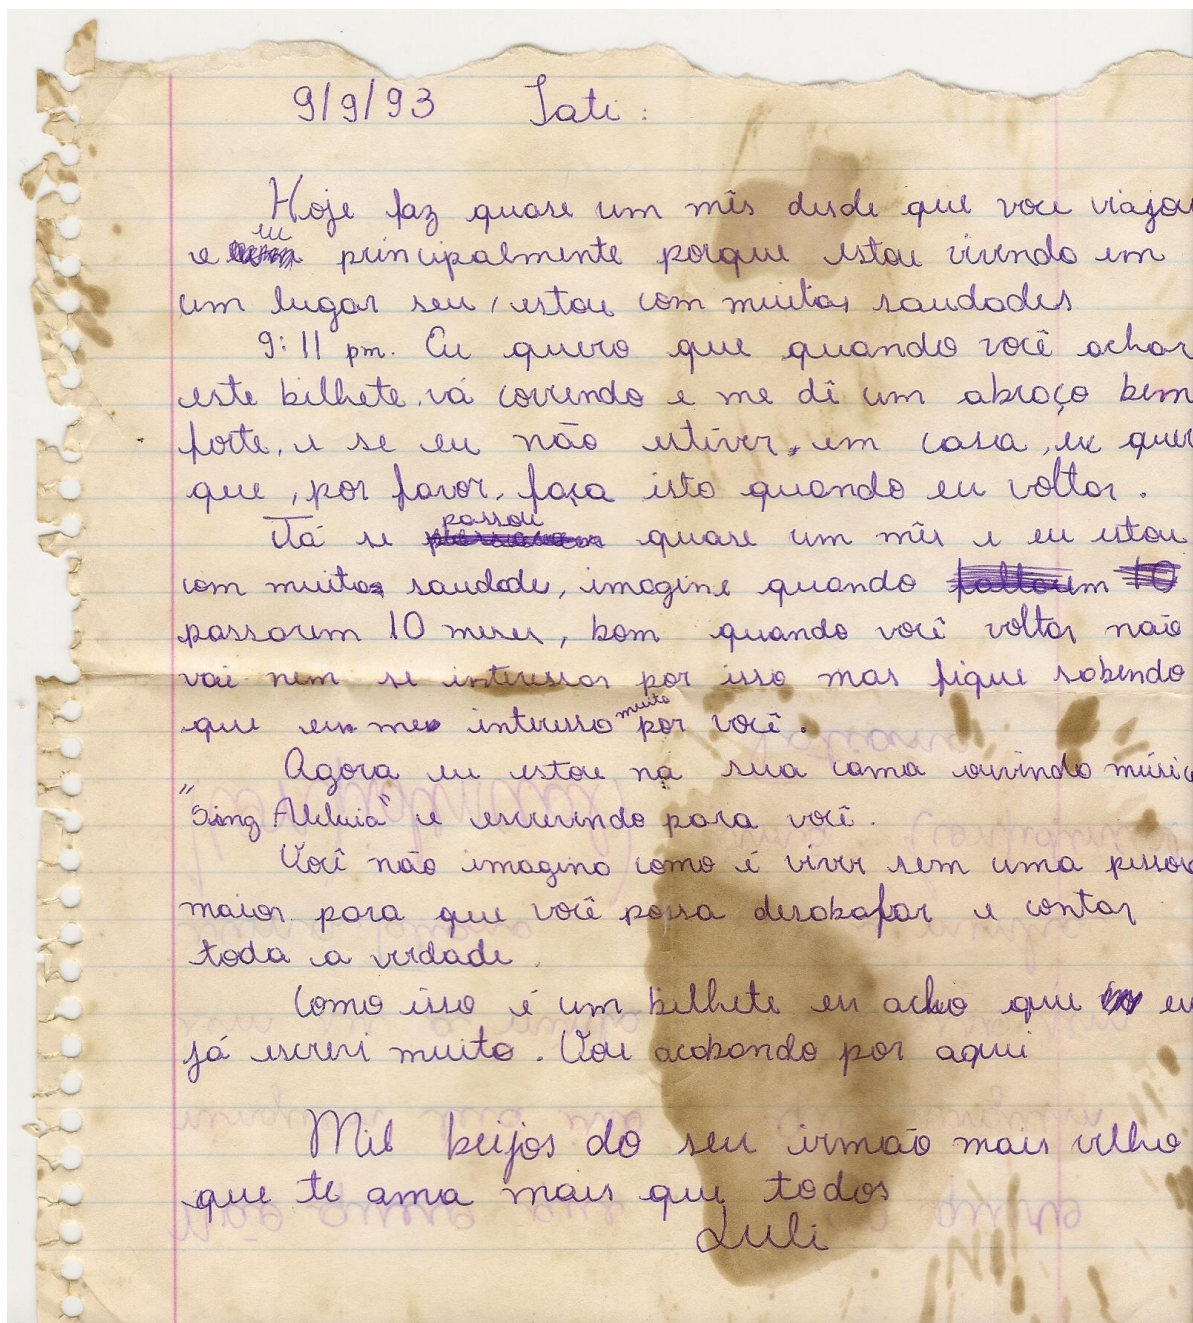 9/9/93 Tati:
Hoje faz quase um mês desde que voce viajou
e eu principalmente porque estou vivendo em
um lugar seu, estou com muitas saudades
9:11 pm. Eu quero que quando você achar
este bilhete, vá correndo e me dê um abraço bem
forte, e se eu não estiver, em casa, eu quer
que, por favor, faça isto quando eu voltar.
Já se passou quase um mês e eu estou
com muita saudade, imagine quando
passarem 10 meses, bom quando você voltar não
vai nem se interessar por isso mas fique sabendo
que eu me interesso muito por você.
Agora eu estou na sua cama ouvindo músic
"Sing Aleluia" e escrevendo para você.
Você não imagina como é viver sem uma pessoa
maior para que você possa desabafar e contar
toda a verdade.
Como isso é um bilhete eu acho que eu
já escrevi muito. Vou acabando por aqui
Mil beijos do seu irmão mais velho
que te ama mais que todos
Luli